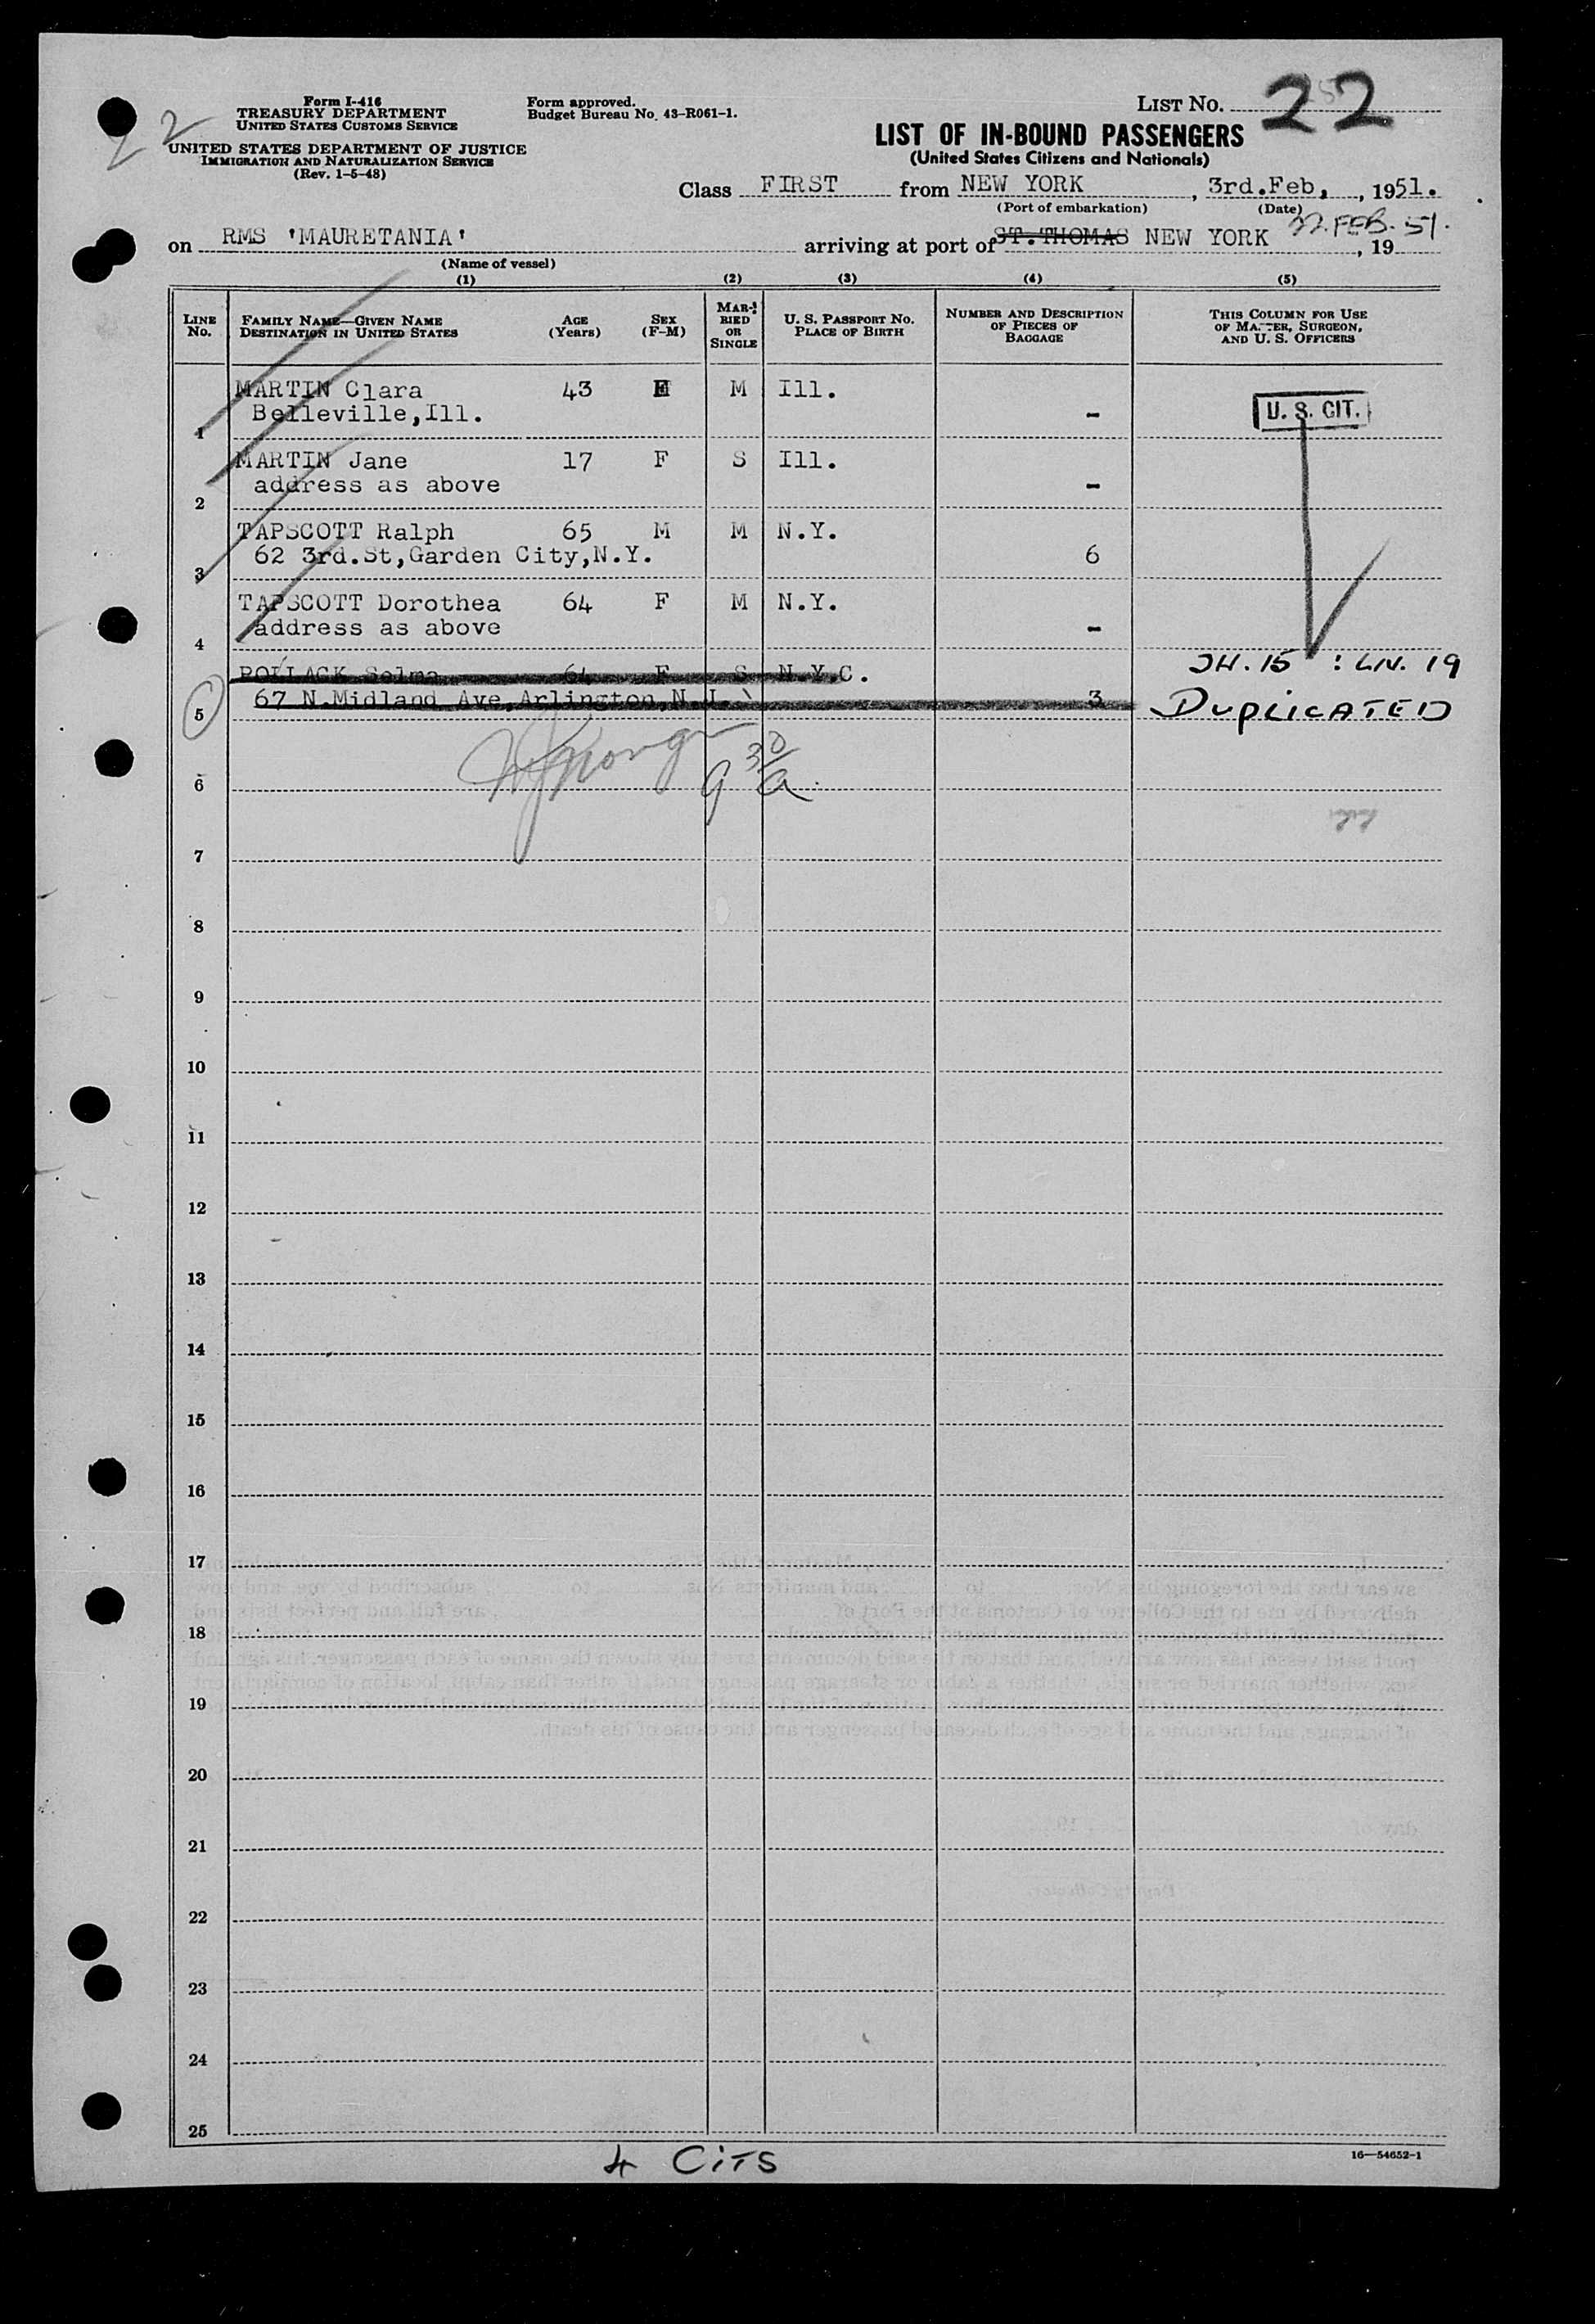 Form I-416
TREASURY DEPARTMENT
UNITED STATES CUSTOMS SERVICE
UNITED STATES DEPARTMENT OF JUSTICE
IMMIGRATION AND NATURALIZATION SERVICE
(Rev. 1-5-48)
Form approved.
Budget Bureau No. 43-R061-1.
LIST NO. 22
LIST OF IN-BOUND PASSENGERS
(United States Citizens and Nationals)
Class FIRST from NEW YORK, 3rd.Feb, 1951.
(Port of embarkation) (Date)
on RMS 'MAURETANIA' arriving at port of ST.THOMAS NEW YORK 22.FEB.51., 19
(Name of vessel)
(1) (2) (3) (4) (5)
LINE No. FAMILY NAME—GIVEN NAME DESTINATION IN UNITED STATES AGE (Years) SEX (F-M) MARRIED OR SINGLE U. S. PASSPORT NO. PLACE OF BIRTH NUMBER AND DESCRIPTION OF PIECES OF BAGGAGE THIS COLUMN FOR USE OF MASTER, SURGEON, AND U. S. OFFICERS
MARTIN Clara 43 F M Ill.
1 Belleville,Ill. - U. S. CIT.
MARTIN Jane 17 F S Ill.
2 address as above -
TAPSCOTT Ralph 65 M M N.Y.
3 62 3rd.St,Garden City,N.Y. 6
TAPSCOTT Dorothea 64 F M N.Y.
4 address as above -
POLLACK Selma 64 F S N.Y.C. SH. 15 : LIN. 19
5 67 N.Midland Ave,Arlington,N.J. 3 DUPLICATED
6 9 30/a.
7
8
9
10
11
12
13
14
15
16
17
18
19
20
21
22
23
24
25
4 CITS
16—54652-1